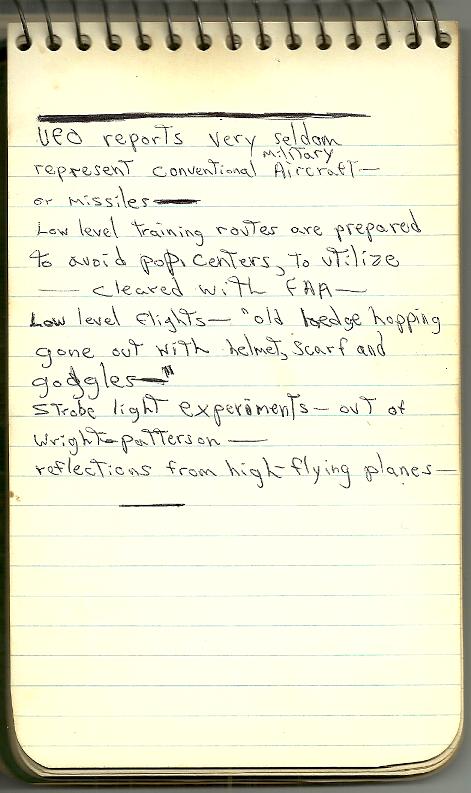 UFO reports very seldom
military
represent conventional Aircraft—
or missiles—
Low level training routes are prepared
to avoid pop. centers, to utilize
— cleared with FAA—
Low level flights— "old hedge hopping
gone out with helmet, scarf and
goggles—"
Strobe light experiments— out of
Wright-patterson —
reflections from high-flying planes—